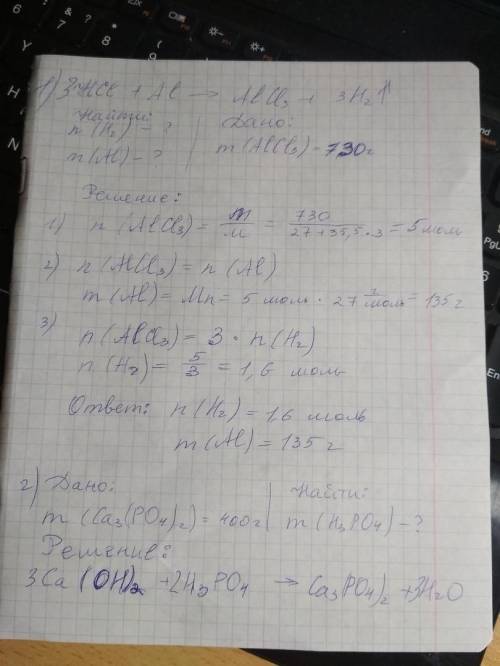 1) 3HCl + Al → AlCl₃ + 3H₂↑
Найти:
n(H₂) - ?
n(Al) - ?
Дано:
m(AlCl₃) - 730г
Решение:
1) n(AlCl₃) = m/M = 730/(27+35,5·3) = 5 моль
2) n(AlCl₃) = n(Al)
m(Al) = Mn = 5 моль · 27 г/моль = 135 г
3) n(AlCl₃) = 3 · n(H₂)
n(H₂) = 5/3 = 1,6 моль
Ответ: n(H₂) = 1,6 моль
m(Al) = 135 г
2) Дано:
m(Ca₃(PO₄)₂) = 400г
Найти:
m(H₃PO₄) - ?
Решение:
3Ca(OH)₂ + 2H₃PO₄ → Ca₃PO₄)₂ + 3H₂O